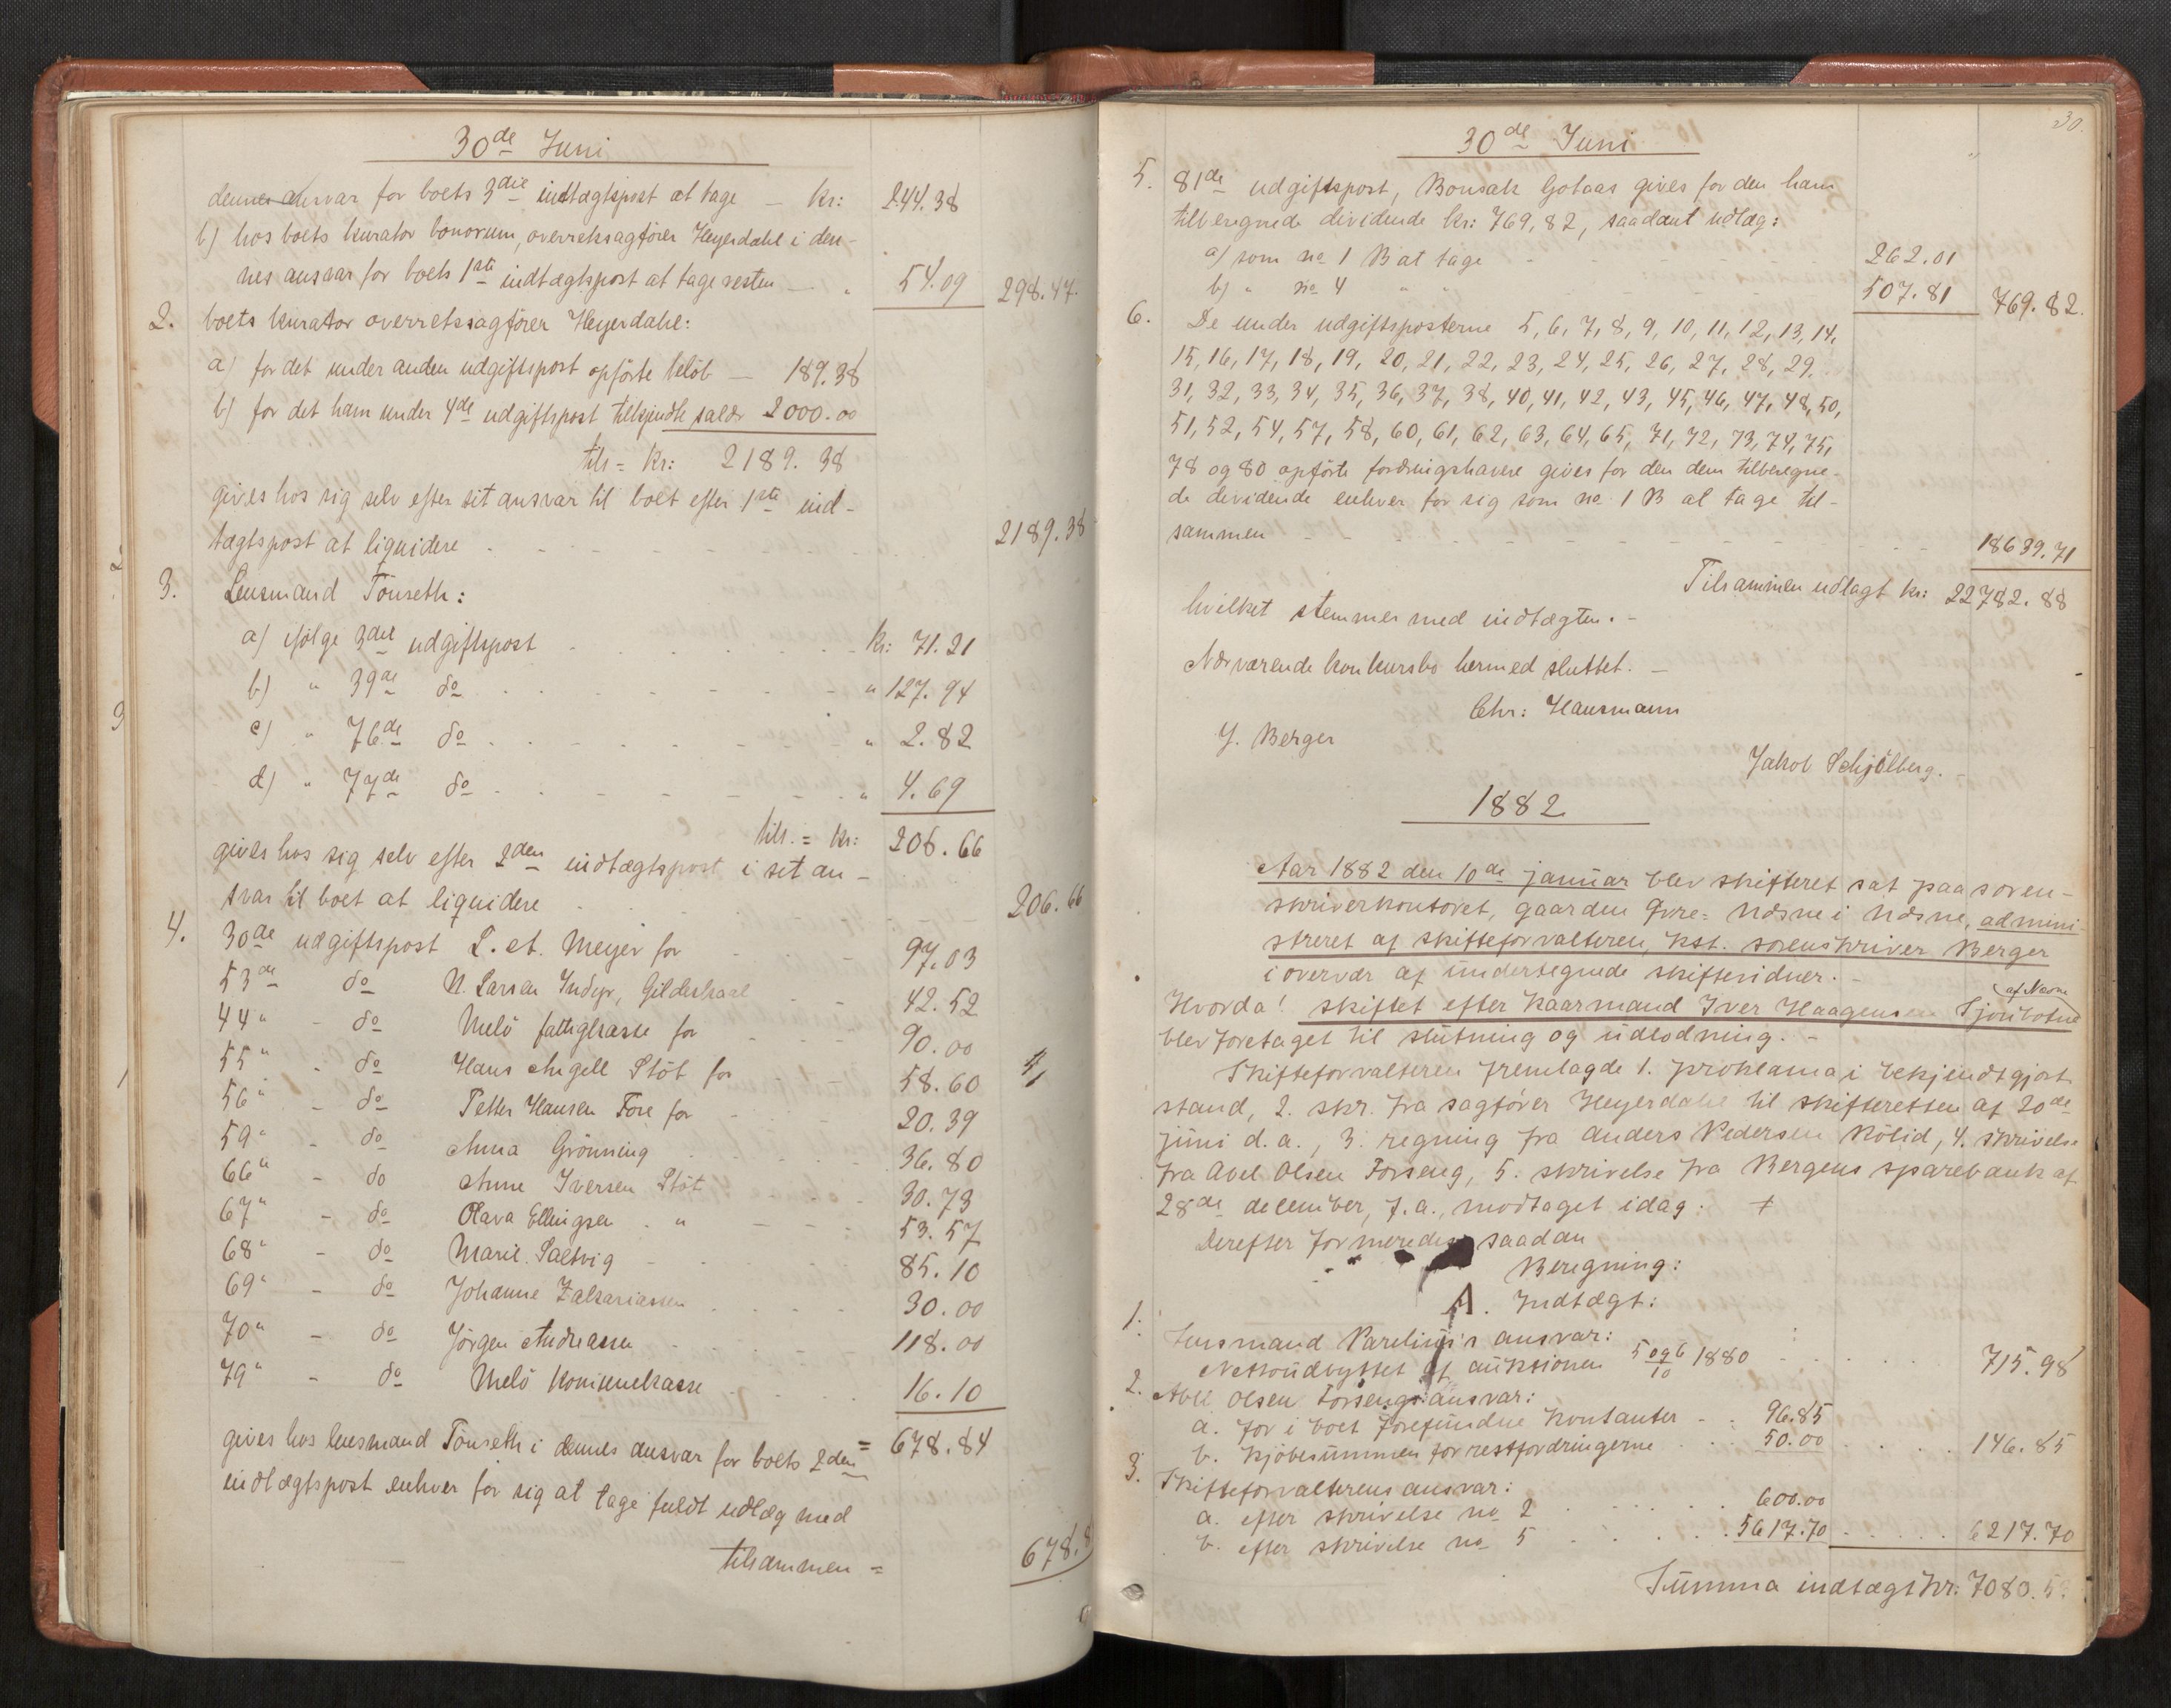 30de Juni
dennes ansvar for boets 3die indtægtspost at tage — kr: 244.38
b) hos boets kurator bonorum, overretssagfører Heyerdahl i den-
nes ansvar for boets 1ste indtægtspost at tage resten — " 54.09 298.47.
2. boets kurator overretssagfører Heyerdahl:
a) for det under anden udgiftspost opførte beløb — 189.38
b) for det ham under 4de udgiftspost tilkjendte salær 2000.00
tils = kr: 2189.38
gives hos sig selv efter sit ansvar til boet efter 1ste ind-
tægtspost at liquidere 2189.38
3. Lensmand Tønseth:
a) ifølge 3die udgiftspost kr: 71.21
b) " 39de do " 127.94
c) " 76de do " 2.82
d) " 77de do " 4.69
tils. = kr: 206.66
gives hos sig selv efter 2den indtægtspost i sit an-
svar til boet at liquidere 206.66
4. 30de udgiftspost L. A. Meyer for 97.03
53de do N. Larsen Indyr, Gildeskaal 42.52
44" - do Melö fattigkasse for 90.00
55" - do Hans Angell Støt for 58.60
56" - do Petter Hansen Fore for 20.39
59" - do Anna Grönning 36.80
66" - do Anne Iversen Støt 30.73
67" - do Olava Ellingsen " 53.57
68" - do Marie Saltvig 85.10
69" - do Johanne Zakariassen 30.00
70" - do Jörgen Andreassen 118.00
79" - do Melö Kommunekasse 16.10
= 678.84
gives hos lensmand Tönseth i dennes ansvar for boets 2den
indtægtspost enhver for sig at tage fuldt udlæg med
tilsammen = 678.8
30.
30de Juni
5. 81de udgiftspost, Bonsak Gotaas gives for den ham
tilberegnede dividende kr: 769,82, saadant udlæg:
a) som no 1 B at tage 262.01
b) " no 4 " " 507.81 769.82.
6. De under udgiftsposterne 5, 6, 7, 8, 9, 10, 11, 12, 13, 14,
15, 16, 17, 18, 19, 20, 21, 22, 23, 24, 25, 26, 27, 28, 29,
31, 32, 33, 34, 35, 36, 37, 38, 40, 41, 42, 43, 45, 46, 47, 48, 50,
51, 52, 54, 57, 58, 60, 61, 62, 63, 64, 65, 71, 72, 73, 74, 75,
78 og 80 opførte fordringshavere gives for den dem tilberegne-
de dividende enhver for sig som no 1 B at tage til-
sammen 18639.71
Tilsammen udlagt kr: 22782.88
hvilket stemmer med indtægten. -
Nærværende konkursbo hermed sluttet. —
Chr: Hansmann
Y. Berger
Jakob Schjölberg.
1882
Aar 1882 den 10de januar blev skifteret sat paa soren-
skriverkontoret, gaarden Øvre= Næsne i Næsne, admini-
streret af skifteforvalteren, kst. sorenskriver Berger
i overvær af undertegnede skiftevidner. -
af Næsne
Hvorda! skiftet efter kaarmand Iver Haagensen Sjonbotne
blev foretaget til slutning og udlodning. -
Skifteforvalteren fremlagde 1. proklama i bekjendtgjort
stand, 2. skr. fra sagfører Heyerdahl til skifteretten af 20de
juni d. a., 3. regning fra Anders Pedersen Kölid, 4. skrivelse
fra Abel Olsen Forseng, 5. skrivelse fra Bergens sparebank af
28de december, f. a., modtaget idag. +
Derefter formeredes saadan
Beregning:
A. Indtægt:
1. Lensmand Parelius's ansvar:
Nettoudbyttet af auktionen 5 og 6/10 1880 715.98
2. Abel Olsen Forsengs ansvar:
a. for i boet forefundne kontanter 96.85
b. kjøbesummen for restfordringerne 50.00 146.85
3. Skifteforvalterens ansvar:
a. efter skrivelse no 2 600.00
b. efter skrivelse no 5 5617.70 6217.70
Summa indtægt kr: 7080.5